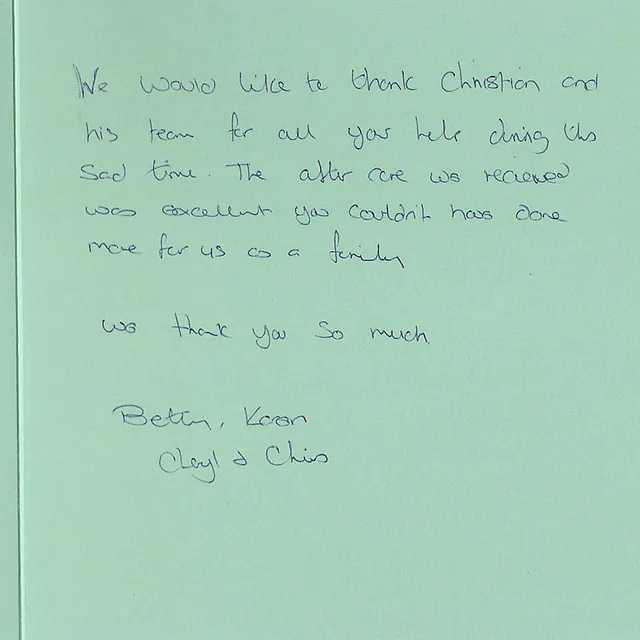 We would like to thank Christian and
his team for all your help during this
sad time. The after care we recieved
was excellent you couldn't have done
more for us as a family
we thank you so much
Betty, Karen
Cheryl & Chris